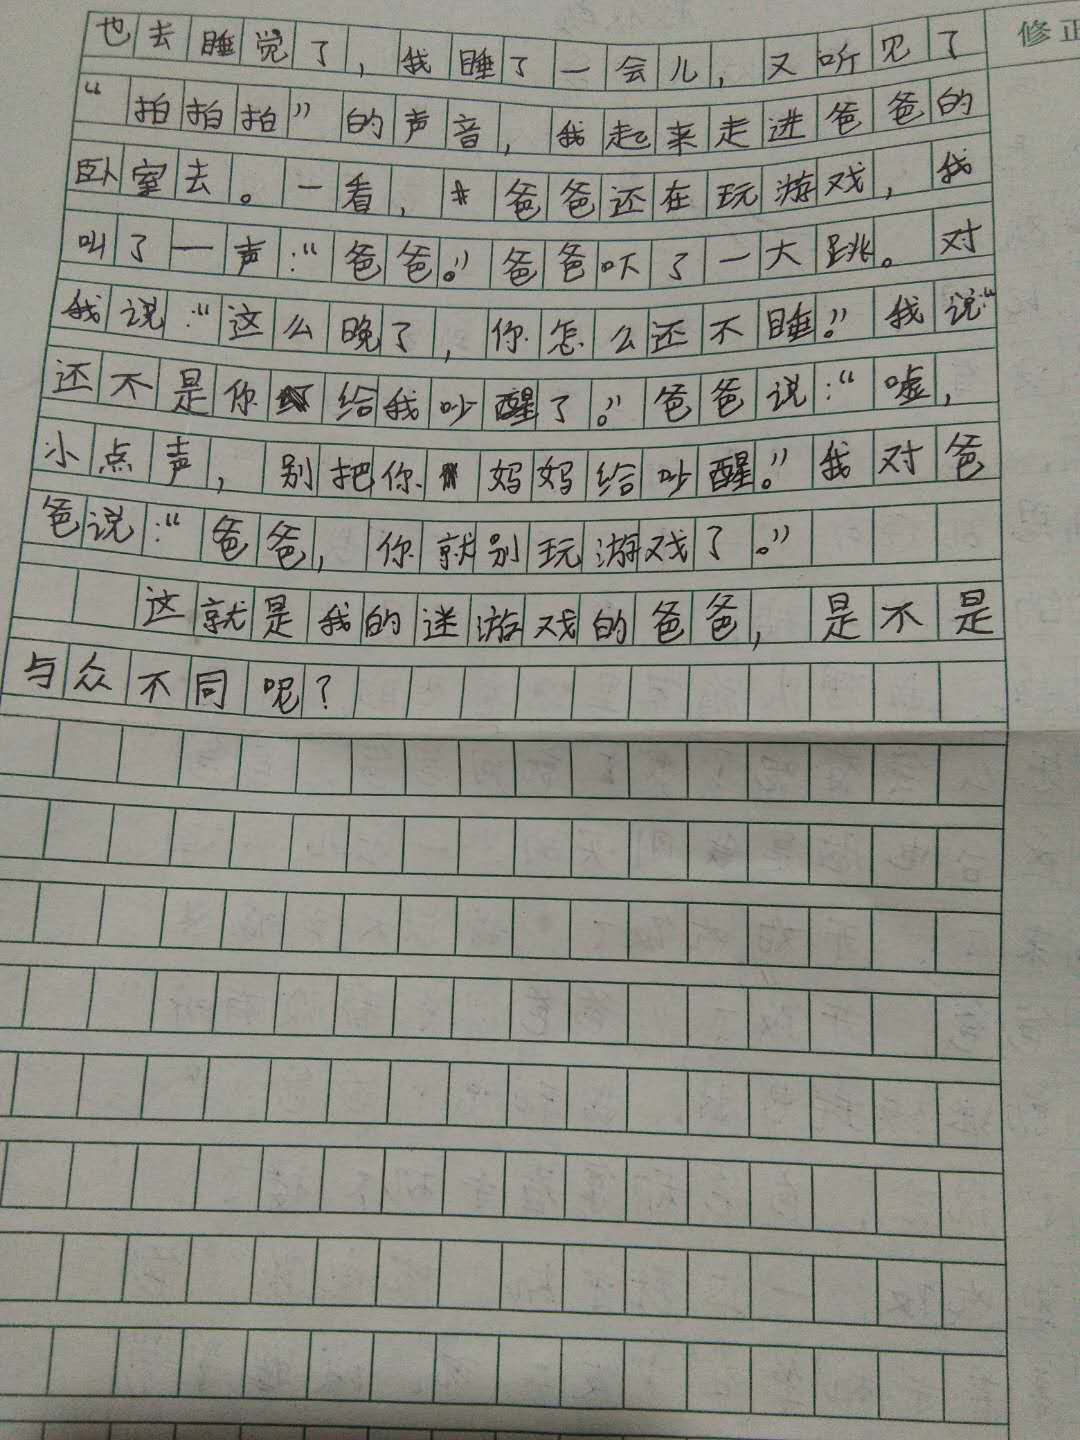 修正
也去睡觉了，我睡了一会儿，又听见了
“拍拍拍”的声音，我起来走进爸爸的
卧室去。一看，爸爸还在玩游戏，我
叫了一声：“爸爸。”爸爸吓了一大跳。对
我说：“这么晚了，你怎么还不睡。”我说“
还不是你给我吵醒了。”爸爸说：“嘘，
小点声，别把你妈妈给吵醒。”我对爸
爸说：“爸爸，你就别玩游戏了。”
这就是我的迷游戏的爸爸，是不是
与众不同呢？